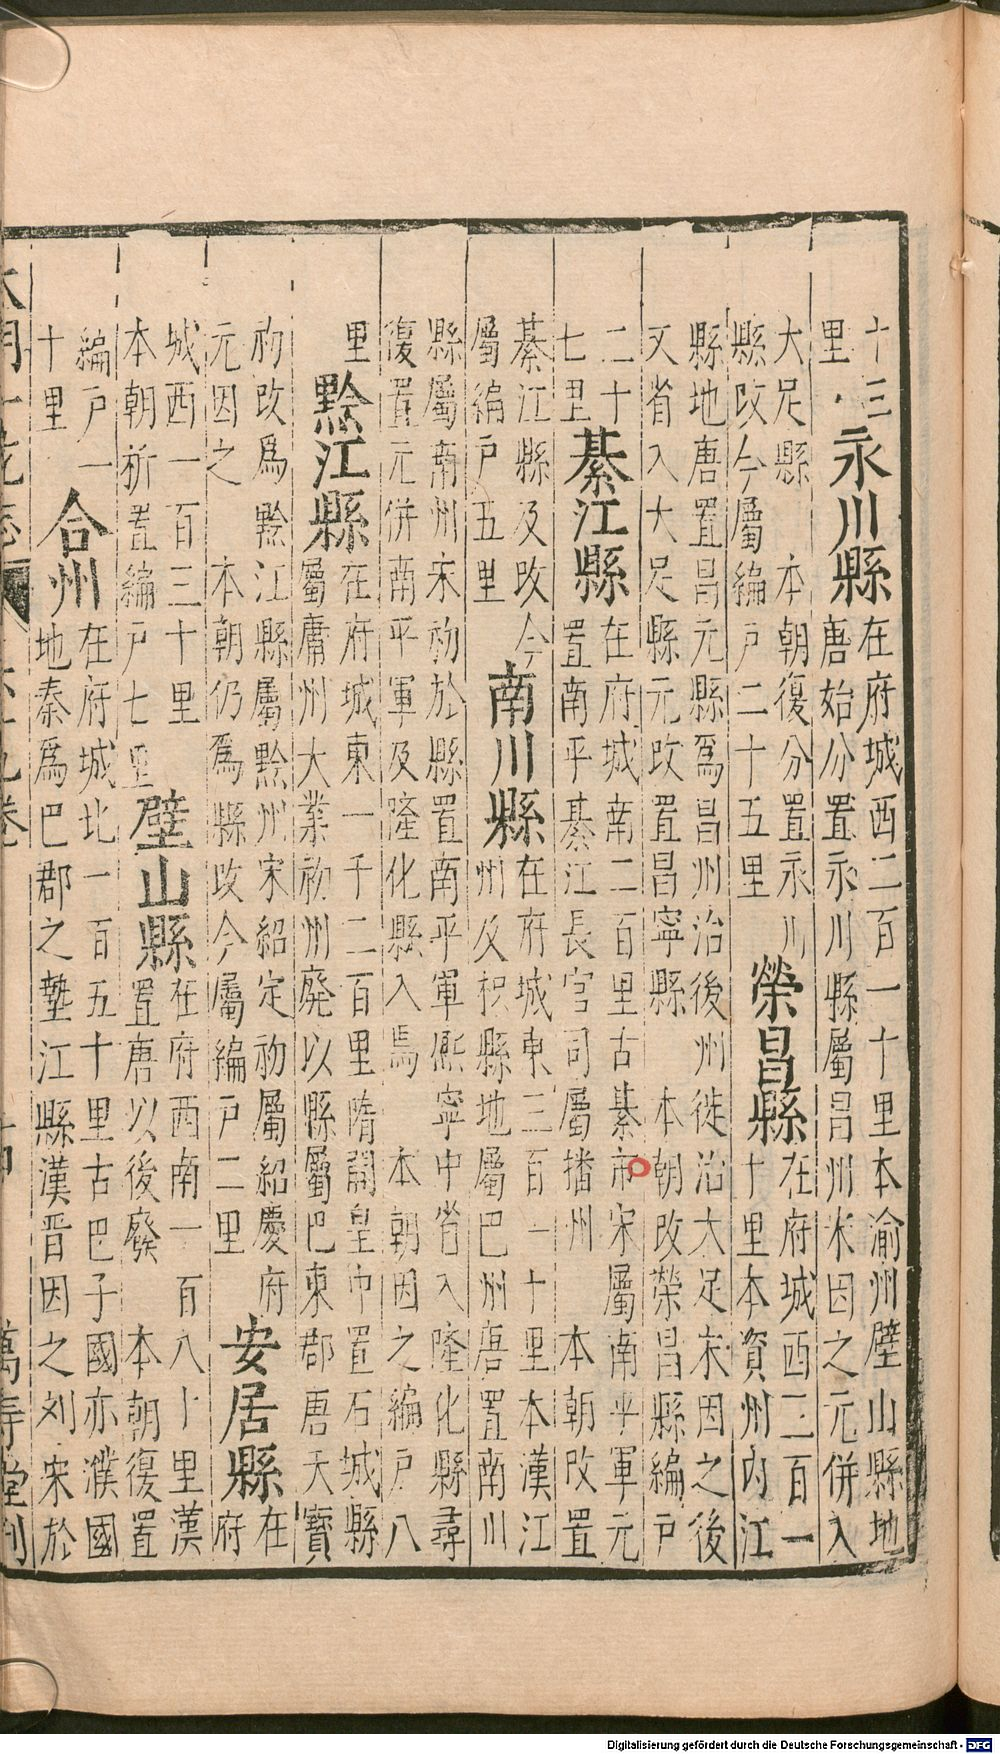 十三
里
永川縣
在府城西二百一十里本渝州壁山縣地
唐始分置永川縣屬昌州宋因之元併入
大足縣　本朝復分置永川
縣改今屬編戶二十五里
榮昌縣
在府城西三百一
十里本資州內江
縣地唐置昌元縣爲昌州治後州徙治大足宋因之後
又省入大足縣元改置昌寧縣　本朝改榮昌縣編戶
二十
七里
綦江縣
在府城南二百里古綦市宋屬南平軍元
置南平綦江長官司屬播州　本朝改置
綦江縣及改今
屬編戶五里
南川縣
在府城東三百一十里本漢江
州及枳縣地屬巴州唐置南川
縣屬南州宋初於縣置南平軍熈寧中省入隆化縣尋
復置元併南平軍及隆化縣入焉　本朝因之編戶八
里
黔江縣
在府城東一千二百里隋開皇中置石城縣
屬庸州大業初州廢以縣屬巴東郡唐天寶
初改爲黔江縣屬黔州宋紹定初屬紹慶府
元因之　本朝仍爲縣改今屬編戶二里
安居縣
在
府
城西一百三十里
本朝析置編戶七里
壁山縣
在府西南一百八十里漢
置唐以後廢　本朝復置
編戶一
十里
合州
在府城北一百五十里古巴子國亦濮國
地秦爲巴郡之墊江縣漢晉因之刘宋於
大明一統志
萬壽堂刋
Digitalisierung gefördert durch die Deutsche Forschungsgemeinschaft - DFG